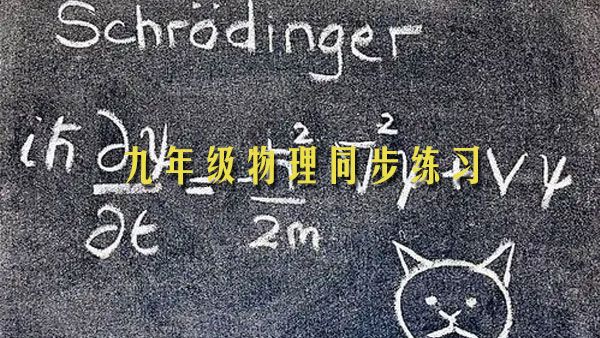 Schrödinger
iħ ∂ψ/∂t = -ħ²/2m ∇²ψ + Vψ
九年级物理同步练习